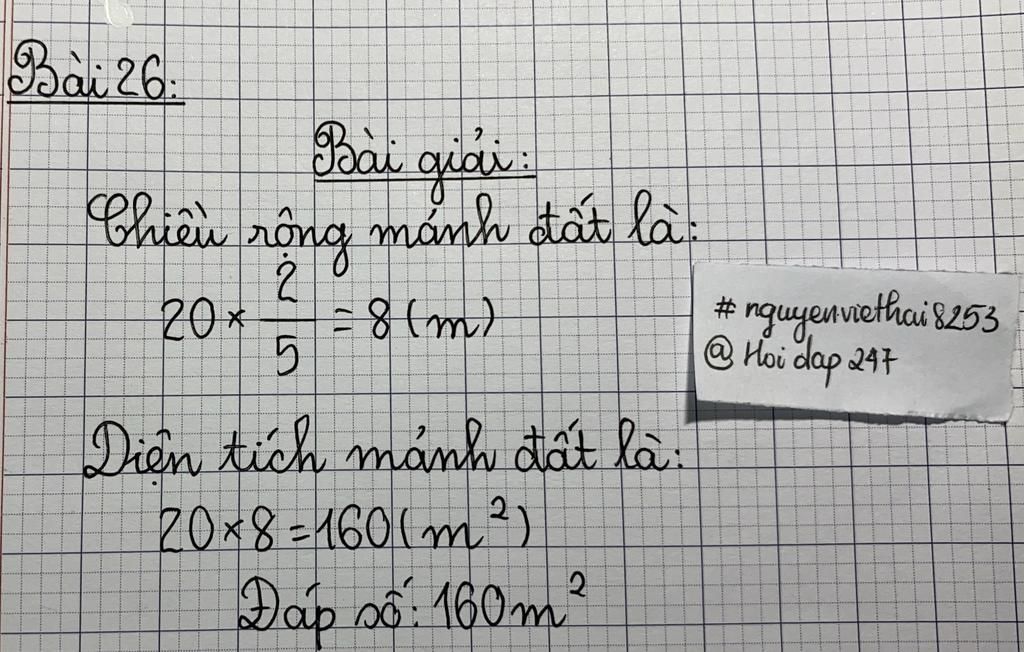 Bài 26:
Bài giải:
Chiều rộng mảnh đất là:
20 × 2/5 = 8 (m)
# nguyenviethai8253
@ Hoi dap 247
Diện tích mảnh đất là:
20 × 8 = 160 (m²)
Đáp số: 160m²